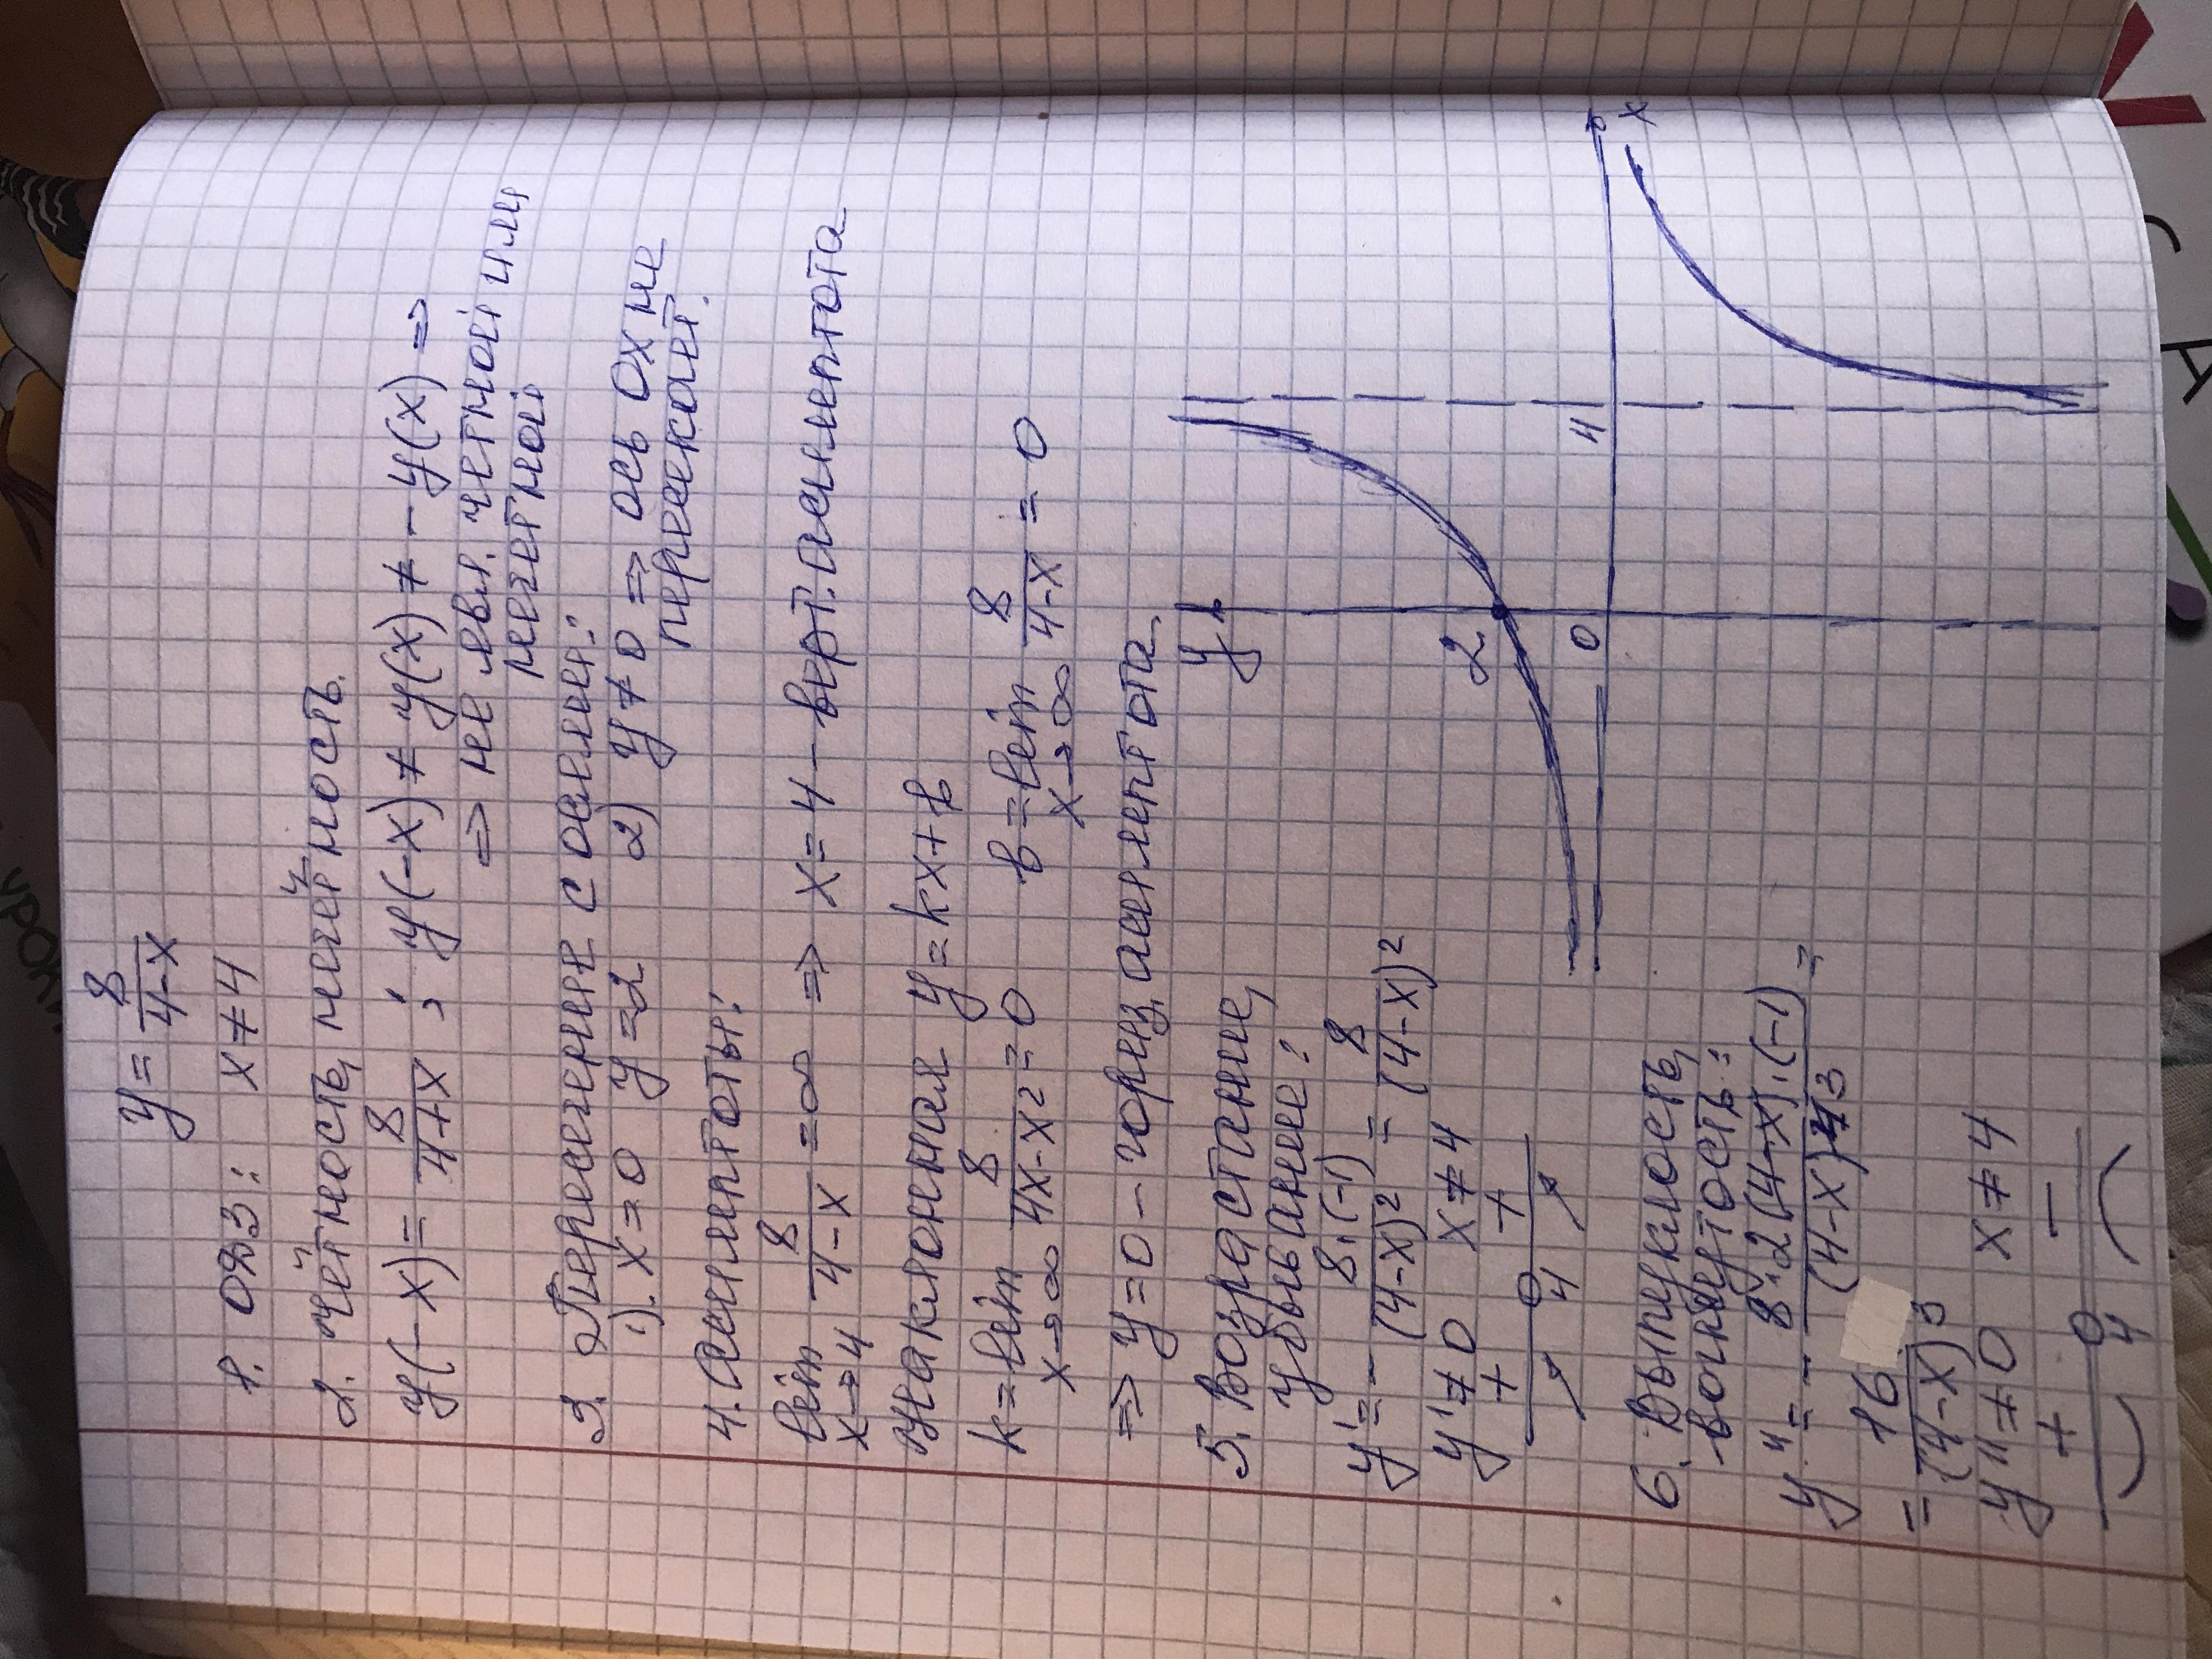 y = 8/(4-x)
1. ОДЗ: x ≠ 4
2. Чётность, нечётность.
y(-x) = 8/(4+x) ; y(-x) ≠ y(x) ≠ -y(x) =>
=> не явл. чётной или
нечётной
3. Пересечение с осями:
1). x = 0 y = 2 2) y ≠ 0 => ось OX не
пересекает.
4. Асимптоты:
lim x→4 8/(4-x) = ∞ => x = 4 - верт. асимптота
Наклонная y = kx + b
k = lim x→∞ 8/(4x-x²) = 0 b = lim x→∞ 8/(4-x) = 0
=> y = 0 - горизг. асимптота
5. Возрастание,
убывание:
y' = - 8·(-1)/(4-x)² = 8/(4-x)²
y' ≠ 0 x ≠ 4
+ +
4
6. Выпуклость,
вогнутость:
y'' = - 8·2(4-x)·(-1)/(4-x)3 =
= 16/(4-x)3
y'' ≠ 0 x ≠ 4
+ -
4
y
2
0
4
x
УРОК